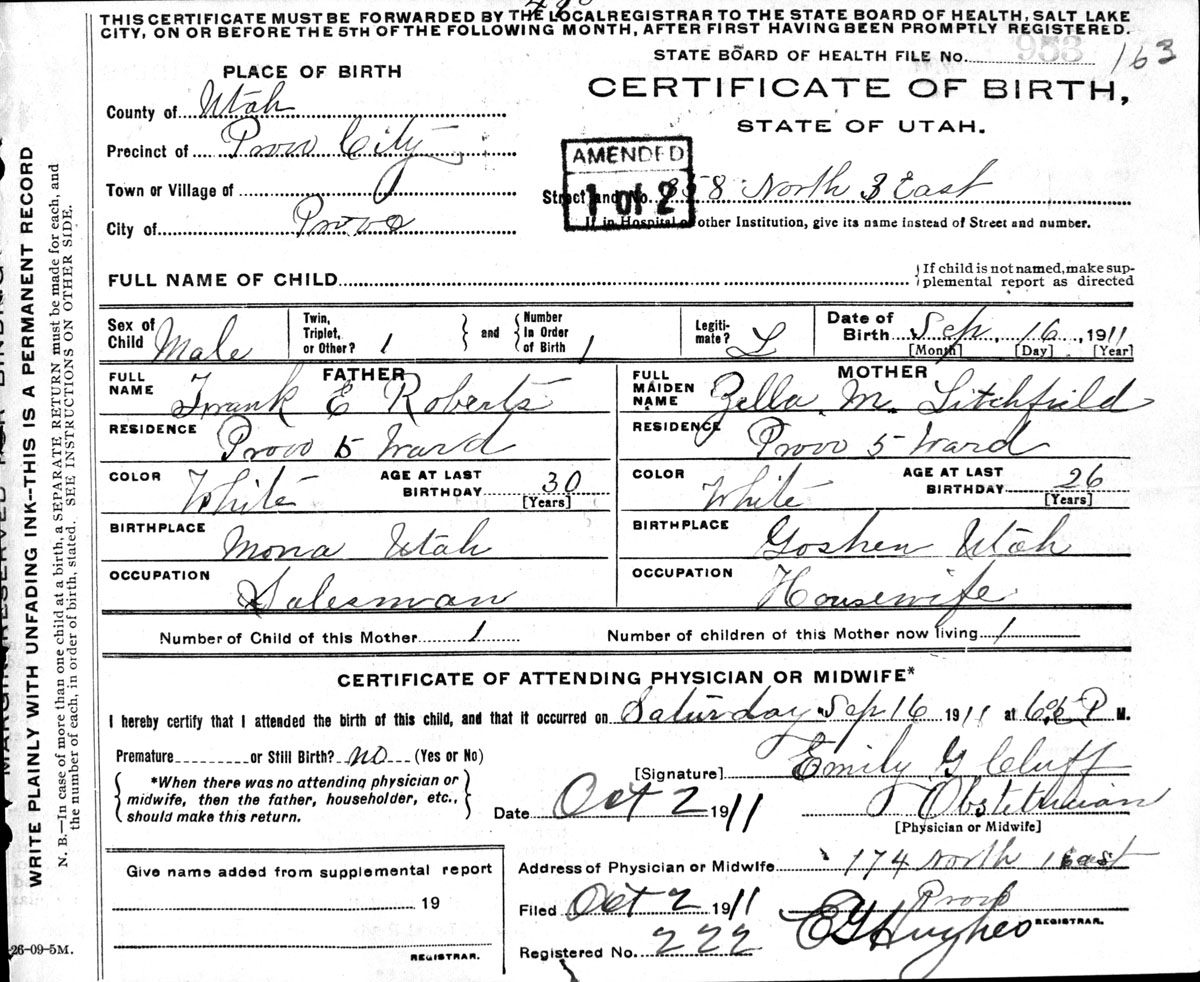 THIS CERTIFICATE MUST BE FORWARDED BY THE LOCAL REGISTRAR TO THE STATE BOARD OF HEALTH, SALT LAKE
CITY, ON OR BEFORE THE 5TH OF THE FOLLOWING MONTH, AFTER FIRST HAVING BEEN PROMPTLY REGISTERED.
STATE BOARD OF HEALTH FILE No. 953 163
PLACE OF BIRTH
CERTIFICATE OF BIRTH,
STATE OF UTAH.
County of Utah
Precinct of Provo City
Town or Village of
City of Provo
AMENDED
1 of 2
Street and No. 358 North 3 East
If in Hospital or other Institution, give its name instead of Street and number.
FULL NAME OF CHILD
{If child is not named, make sup-
plemental report as directed
Sex of Child Male
Twin, Triplet, or Other? 1
and
Number In Order of Birth 1
Legiti-mate? L
Date of Birth Sep. 16, 1911
[Month] [Day] [Year]
FATHER
FULL NAME Frank E Roberts
MOTHER
FULL MAIDEN NAME Zella M. Litchfield
RESIDENCE Provo 5 Ward
RESIDENCE Provo 5 Ward
COLOR White AGE AT LAST BIRTHDAY 30 [Years]
COLOR White AGE AT LAST BIRTHDAY 26 [Years]
BIRTHPLACE Mona Utah
BIRTHPLACE Goshen Utah
OCCUPATION Salesman
OCCUPATION Housewife
Number of Child of this Mother 1 Number of children of this Mother now living 1
CERTIFICATE OF ATTENDING PHYSICIAN OR MIDWIFE*
I hereby certify that I attended the birth of this child, and that it occurred on Saturday Sep 16 1911 at P M.
Premature or Still Birth? no (Yes or No)
*When there was no attending physician or
midwife, then the father, householder, etc.,
should make this return.
[Signature] Emily G Cluff
Date Oct 2 1911 Obstetrician
[Physician or Midwife]
Give name added from supplemental report
19
REGISTRAR.
Address of Physician or Midwife 174 North 1 East
Provo
Filed Oct 2 1911 E G Hughes REGISTRAR.
Registered No. 222
26-09-5M.
WRITE PLAINLY WITH UNFADING INK--THIS IS A PERMANENT RECORD
N. B.—In case of more than one child at a birth, a SEPARATE RETURN must be made for each, and
the number of each, in order of birth, stated. SEE INSTRUCTIONS ON OTHER SIDE.